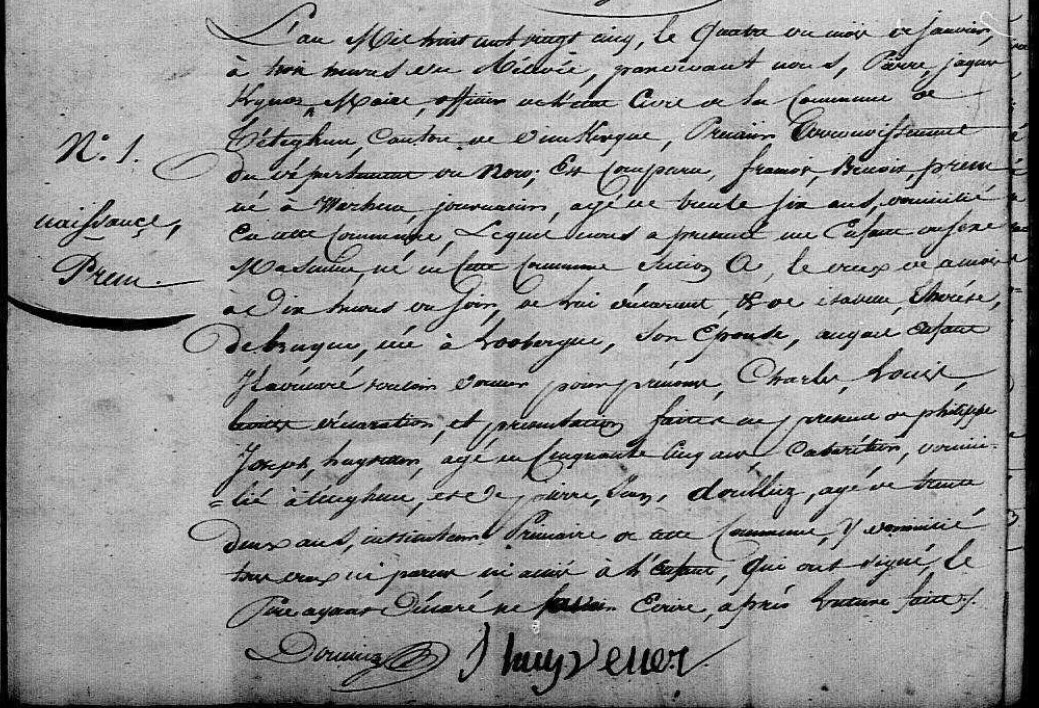 L'an Mil huit cent vingt cinq, le Quatre du mois de janvier,
à trois heures de Rélevée, pardevant nous, Pierre, jaques
Maire, officier de l'état Civil de la Commune de
Téteghem, Canton de Dunkerque, Premier Arrondissement
N.° 1.
Du département du Nord; Est Comparu, françois, Benoit, Preem
né à Warhem, journalier, agé de trente six ans, domicilié
naissance,
En cette Commune, Lequel nous a présenté un Enfant du sexe
Preem.
Masculin, né en Cette Commune Section A, le deux de ce mois
à Dix heures du Soir, de lui déclarant, & de isabelle, Thérèse,
Debruyne, née à Looberghe, Son Epouse, auquel Enfant
Il a déclaré vouloir donner pour prénoms, Charles, Louis,
déclaration, et présentation faites en présence de philippe
Joseph, agé de Cinquante Cinq ans Cabarétier, domici-
-lié à téteghem, et de pierre, agé de trente
deux ans, instituteur Primaire de cette Commune, y domicilié
tous deux ni parens ni amis à l'Enfant, Qui ont signé, le
Pere ayant Déclaré ne savoir Ecrire, après lecture faite.